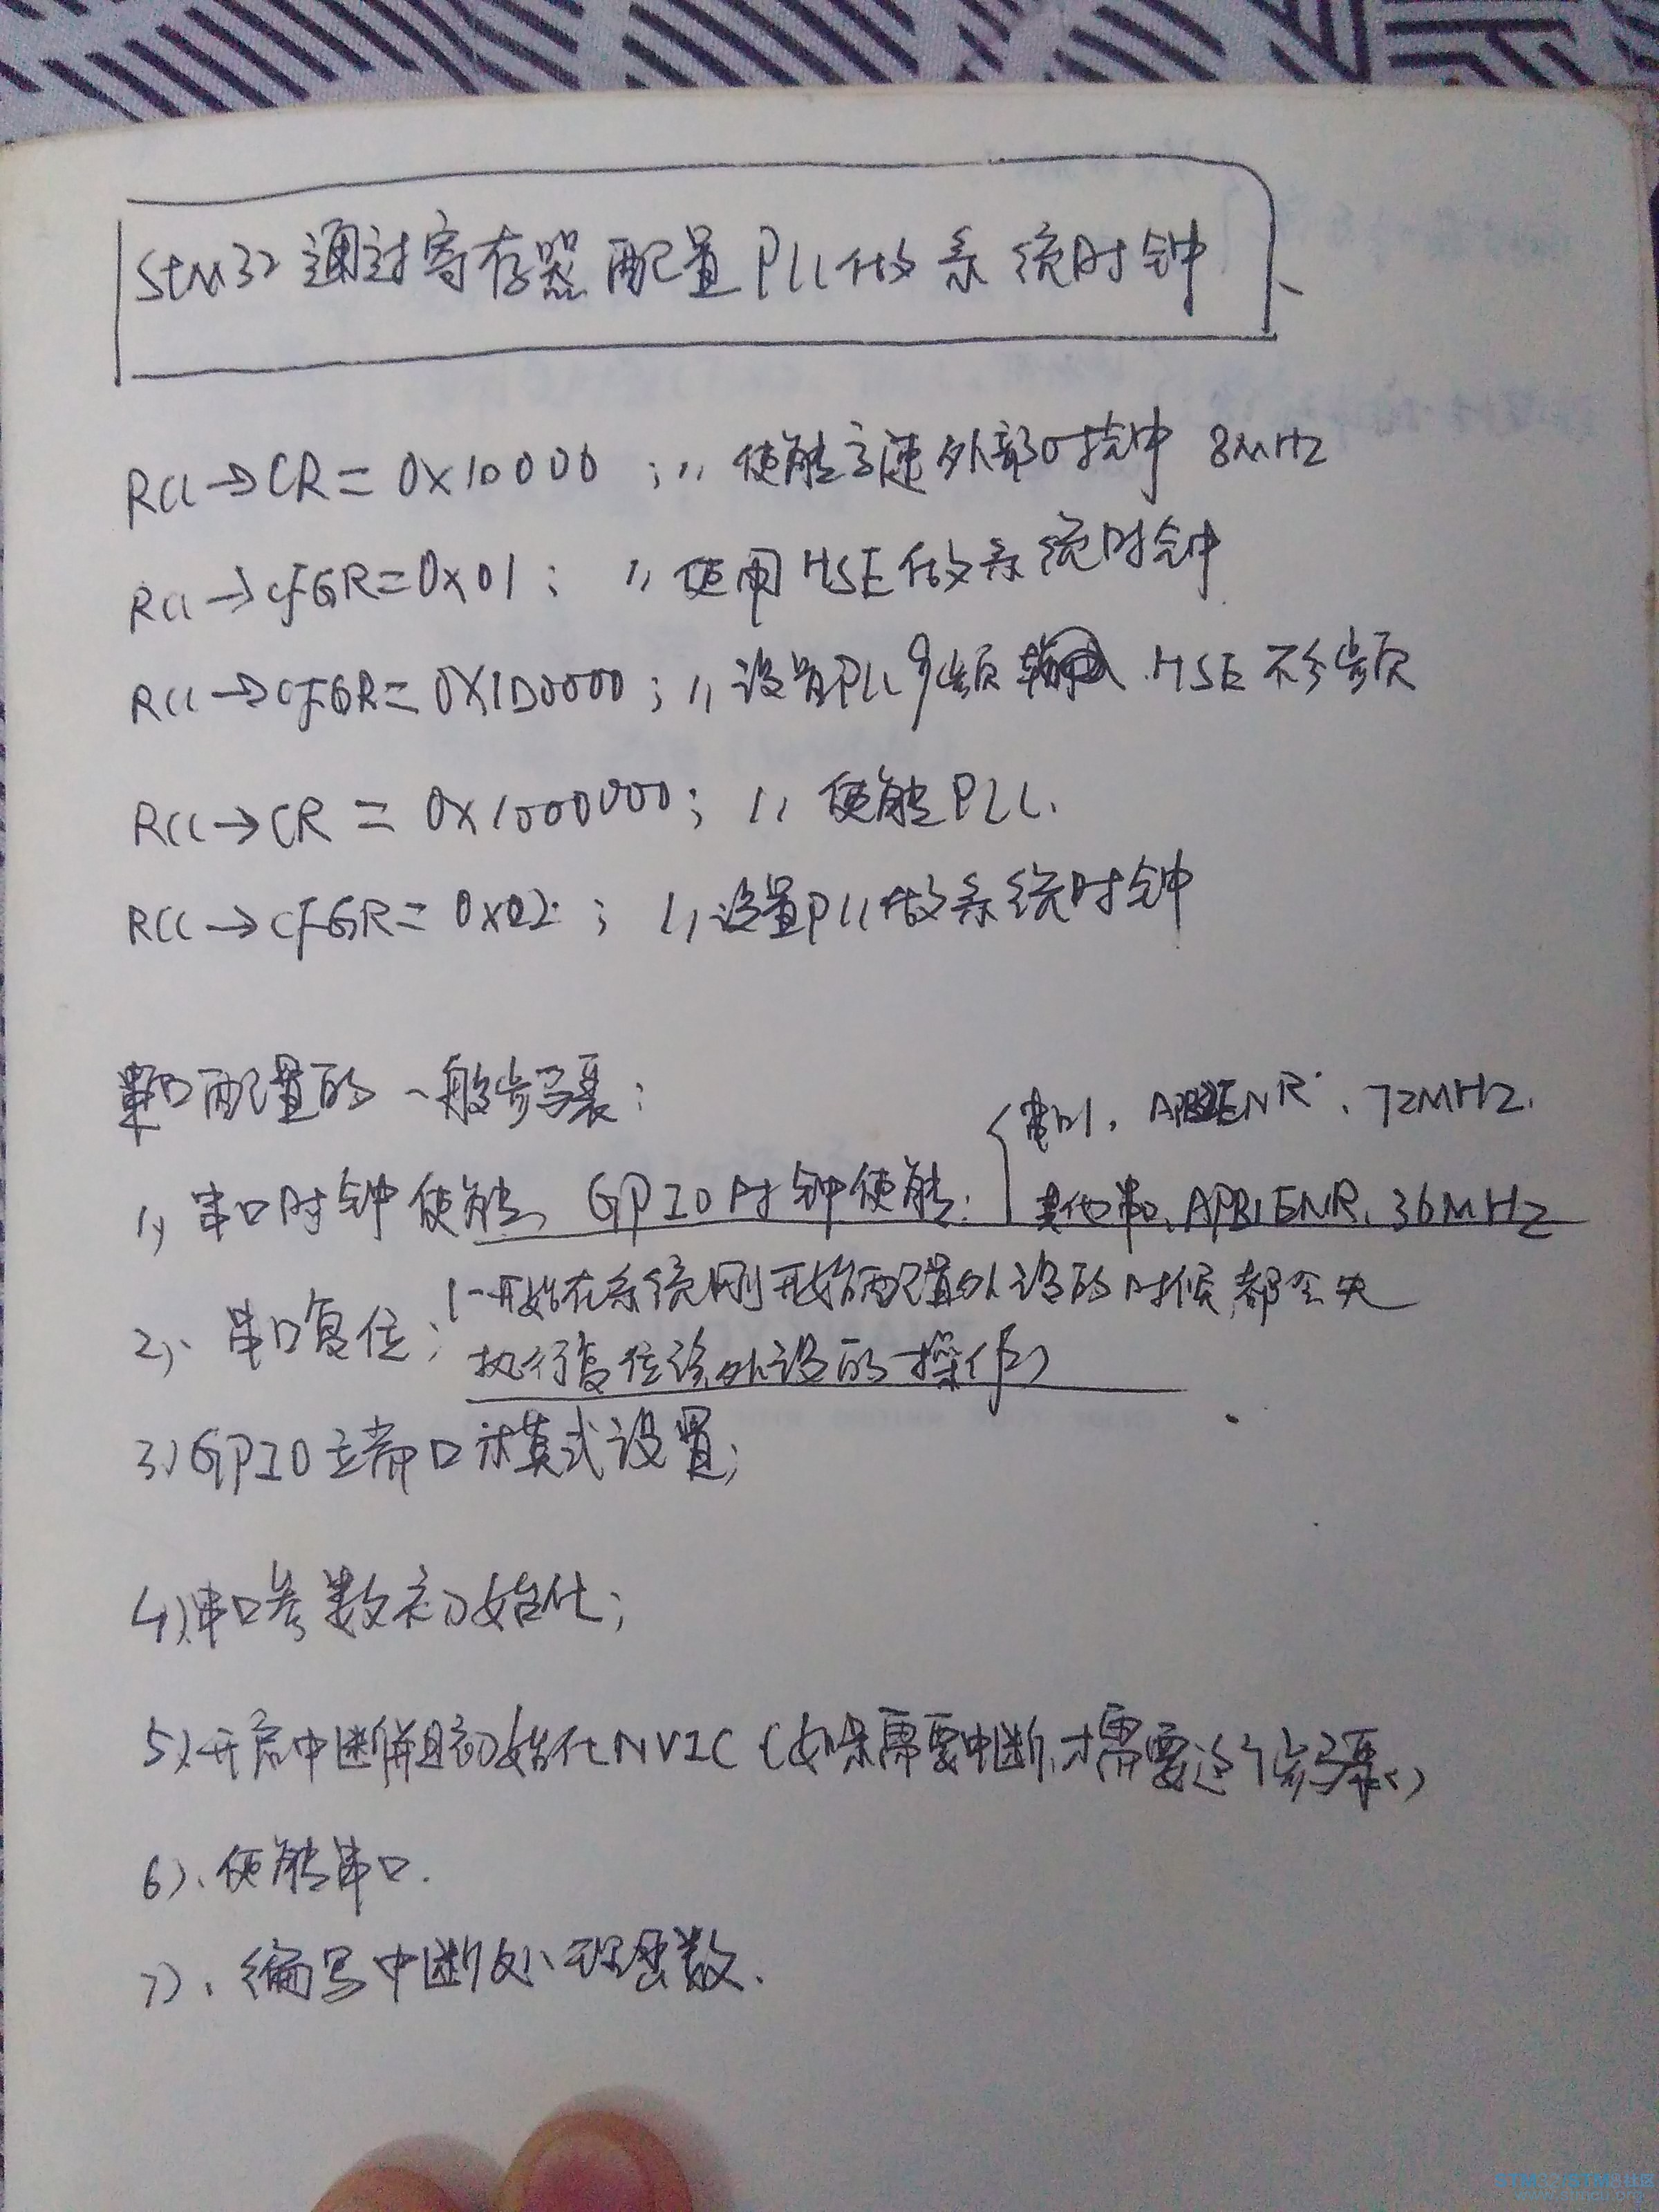 Stm32 通过寄存器配置PLL做系统时钟
RCC→CR = 0X10000 ; // 使能高速外部时钟 8MHZ
RCC→CFGR=0X01; // 使用HSE做系统时钟
RCC→CFGR=0X1D0000; // 设置PLL9倍频 输入 HSE不分频
RCC→CR = 0X1000000; // 使能PLL.
RCC→CFGR= 0X02; // 设置PLL做系统时钟
串口配置的一般步骤:
串口1, APB2ENR、72MHZ.
1) 串口时钟使能、GPIO时钟使能:
其他串口、APB1ENR、36MHZ
2)、串口复位; (一开始在系统刚开始配置外设的时候都会先
执行复位该外设的操作)
3) GPIO端口模式设置;
4) 串口参数初始化;
5) 开启中断并且初始化NVIC (如果需要中断,才需要这个步骤)
6)、使能串口.
7)、编写中断处理函数.
www.stmcu.org